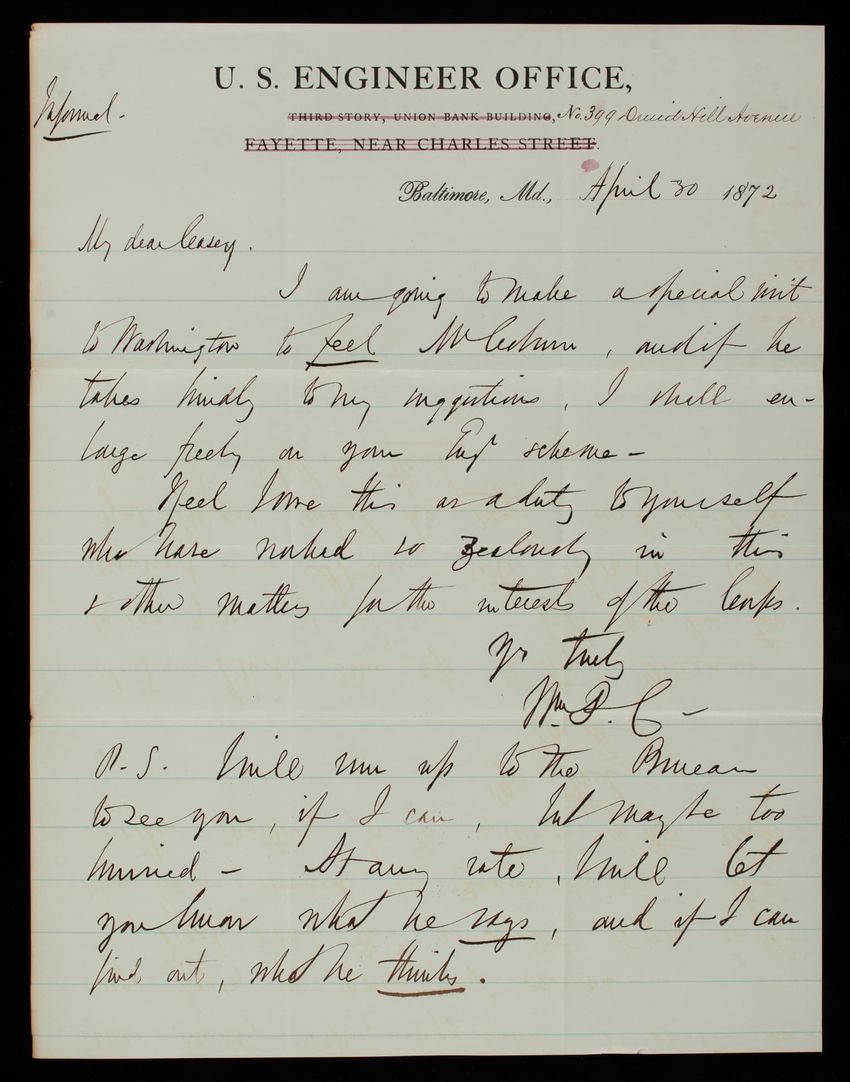 Informal -
U. S. ENGINEER OFFICE,
THIRD STORY, UNION BANK BUILDING, No. 399 Druid Hill Avenue
FAYETTE, NEAR CHARLES STREET.
Baltimore, Md., April 30 1872
My dear Casey.
I am going to make a special visit
to Washington to feel McComb, and if he
takes kindly to my suggestions, I shall en-
large freely on your Engr scheme -
I feel I owe this as a duty to yourself
who have worked so zealously in this
& other matters for the interests of the Corps.
Yr truly
Wm. P. C -
P. S. I will run up to the Bureau
to see you, if I can, but may be too
hurried - At any rate, I will let
you know what he says, and if I can
find out, what he thinks.